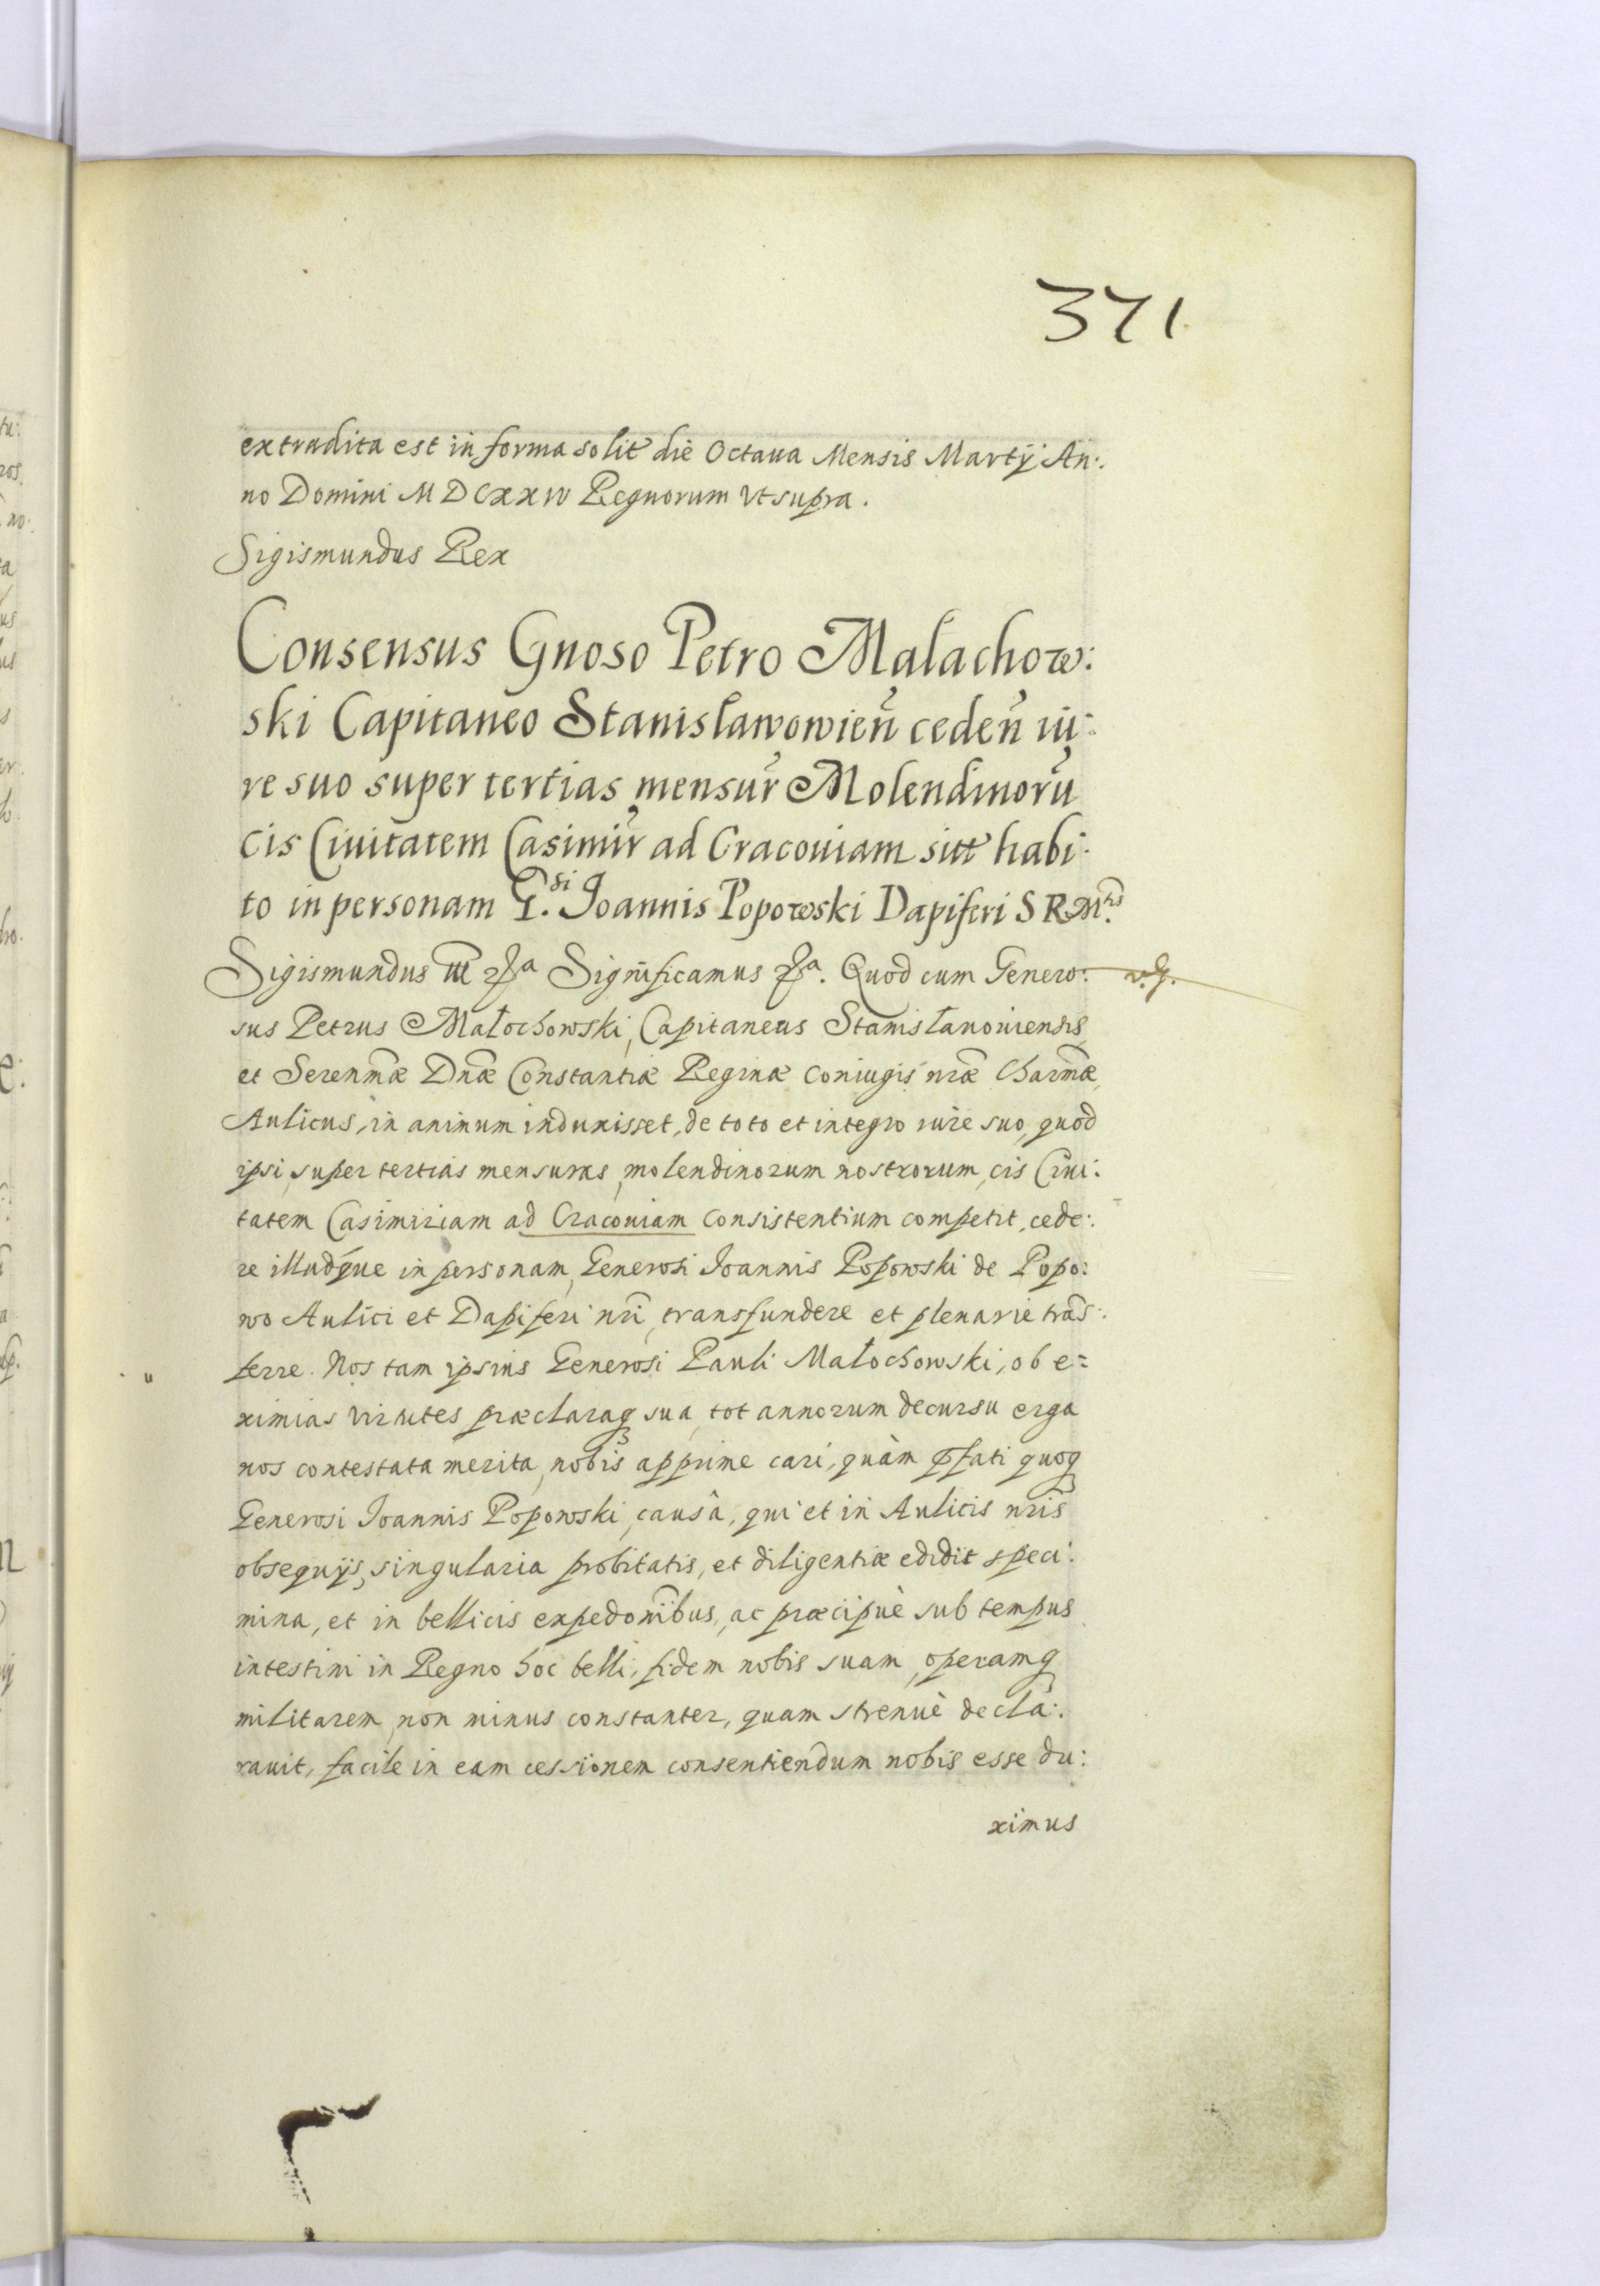 371
extradita est in forma solit die Octaua Mensis Martÿ An:
no Domini MDCXXIV Regnorum Vt supra.
Sigismundus Rex
Consensus Gnoso Petro Malachow:
ski Capitaneo Stanisławowień cedeń iu:
re suo super tertias mensur Molendinorū
cis Ciuitatem Casimir ad Cracouiam sitt habi:
to in personam G.si Joannis Popowski Dapiferi S R Mtis.
Sigismundus III Significamus Quod cum Genero:
sus Petrus Małochowski, Capitaneus Stanisłauouiensis
et Serenmæ Dnæ Constantiæ Reginæ Coniugis nræ Charmæ
Aulicus, in animum induxisset, de toto et integro iure suo, quod
ipsi super tertias mensuras, molendinorum nostrorum, cis Ciui:
tatem Casimiriam ad Cracouiam consistentium competit, cede:
re illudque in personam, Generosi Joannis Popowski de Popo:
wo Aulici et Dapiferi nri, transfundere et plenarie trās:
ferre. Nos tam ipsius Generosi Pauli Małochowski, ob e=
ximias virtutes præclaraq sua, tot annorum decursu erga
nos contestata merita, nobis apprime cari, quàm pfati quoq
Generosi Ioannis Popowski, causâ, qui et in Aulicis nris
obsequÿs, singularia probitatis, et diligentiæ edidit speci:
mina, et in bellicis expedonibus, ac præcipuè sub tempus
intestini in Regno hoc belli, fidem nobis suam, operamq
militarem, non minus constanter, quam strenuè decla:
rauit, facile in eam cessionem consentiendum nobis esse du:
ximus